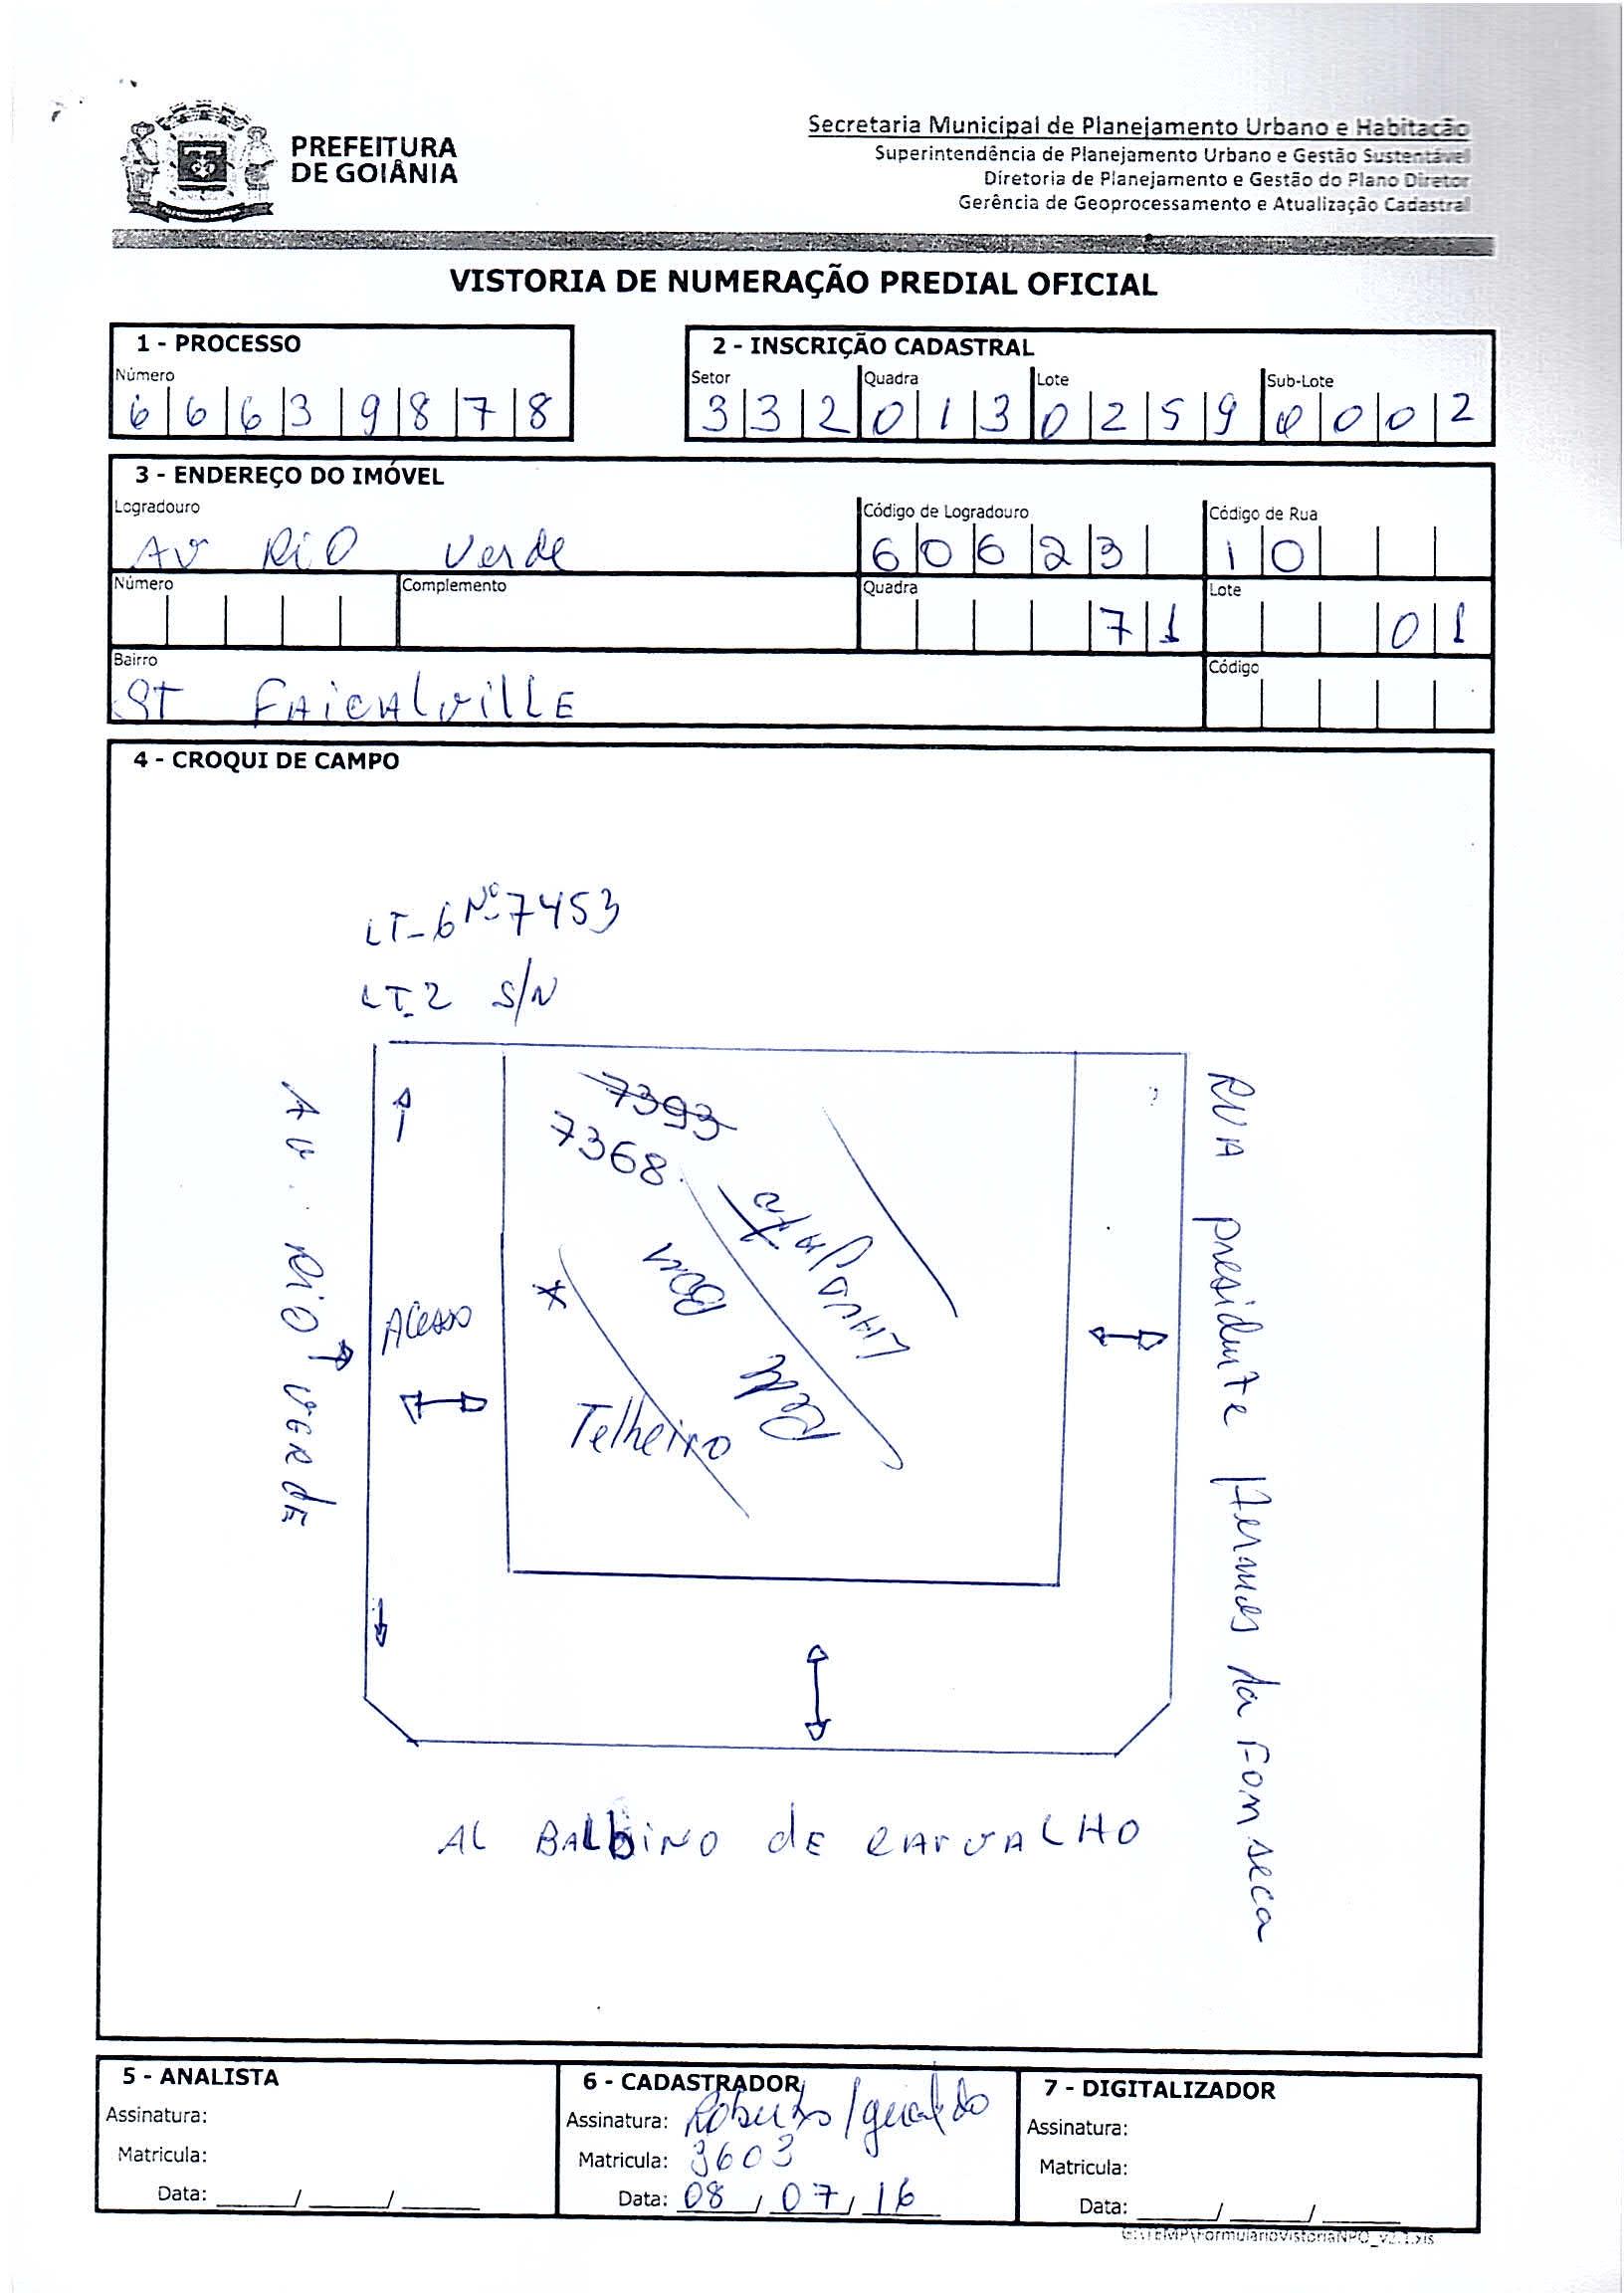 PREFEITURA
DE GOIÂNIA
Secretaria Municipal de Planejamento Urbano e Habitação
Superintendência de Planejamento Urbano e Gestão Sustentável
Diretoria de Planejamento e Gestão do Plano Diretor
Gerência de Geoprocessamento e Atualização Cadastral
VISTORIA DE NUMERAÇÃO PREDIAL OFICIAL
1 - PROCESSO
Número
6 6 6 3 9 8 7 8
2 - INSCRIÇÃO CADASTRAL
Setor Quadra Lote Sub-Lote
3 3 2 0 1 3 0 2 5 9 0 0 0 2
3 - ENDEREÇO DO IMÓVEL
Logradouro Código de Logradouro Código de Rua
AV RiO Verde 6 0 6 2 3 1 0
Número Complemento Quadra Lote
7 1 0 1
Bairro Código
ST FAiCALvillE
4 - CROQUI DE CAMPO
LT-6 Nº 7453
LT-2 S/N
7393
7368
LAVAJATO
Telheiro
Acesso
AV. RiO VERdE
RUA presidente Hermes da Fonseca
AL BALbiNO dE CArvALHO
5 - ANALISTA
Assinatura:
Matricula:
Data: ___/___/___
6 - CADASTRADOR
Assinatura: Roberto/geraldo
Matricula: 3603
Data: 08/07/16
7 - DIGITALIZADOR
Assinatura:
Matricula:
Data: ___/___/___
G:\TEMP\FormularioVistoriaNPO_v2.1.xls